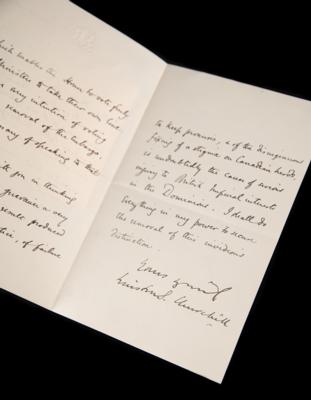 which enables the House to vote freely
Minister to take their own line
any intention of voting
removal of the embargo.
many of speaking to that
with you in thinking
grievance a very
produced
of failure
to keep promises, & of the disingenuous
fixing of a stigma on Canadian herds,
is undoubtedly the cause of serious
injury to British Imperial interests
in the Dominion. I shall do
everything in my power to secure
the removal of this invidious
distinction.
Yours sincerely
Winston S. Churchill